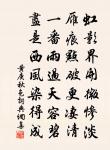 虹影界開慘淡
雁痕點破更凄清
一番雨過天容碧
盡是西風染得成
黃庚秋色詞典網